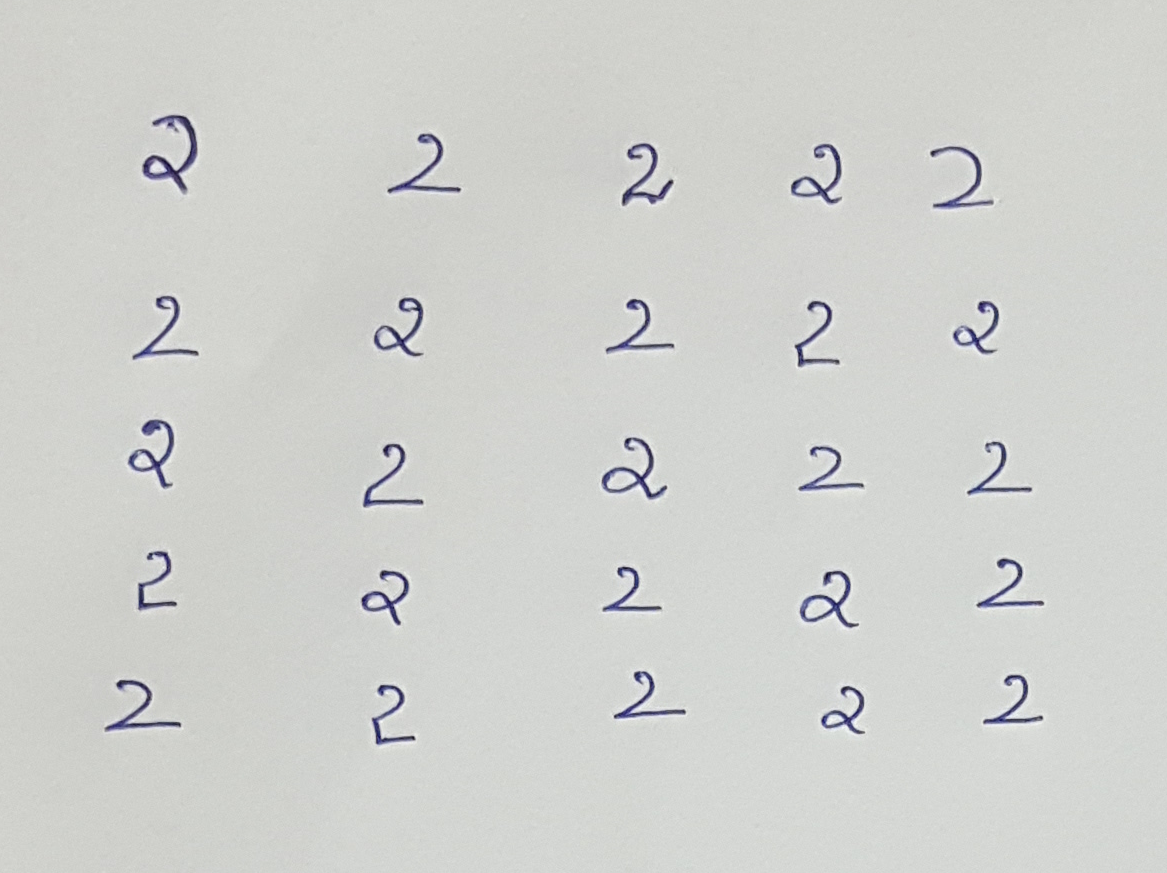 2 2 2 2 2
2 2 2 2 2
2 2 2 2 2
2 2 2 2 2
2 2 2 2 2